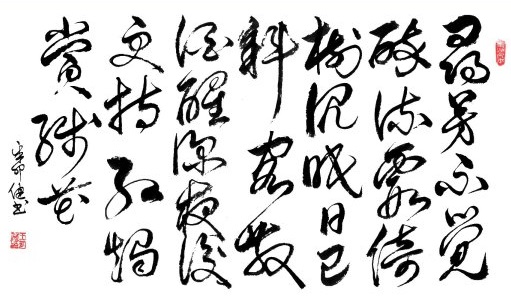 尋芳不覺
醉流霞倚
樹沉眠日已
斜客散
酒醒深夜後
更持紅燭
賞殘花
辛卯健書